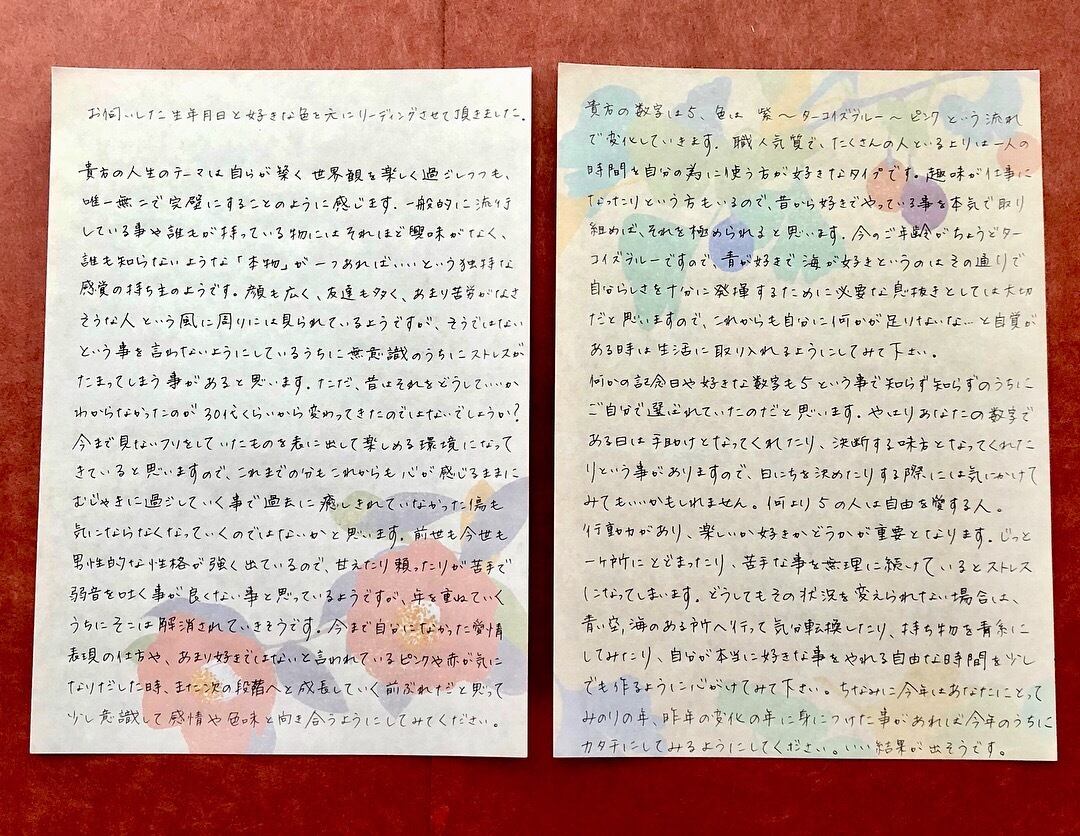 お伺いした生年月日と好きな色を元にリーディングさせて頂きました。
貴方の人生のテーマは自らが築く世界観を楽しく過ごしつつも、
唯一無二で完璧にすることのように感じます。一般的に流行
している事や誰もが持っている物にはそれほど興味がなく、
誰も知らないような「本物」が一つあればいいという独特な
感覚の持ち主のようです。顔も広く、友達も多く、あまり苦労がなさ
そうな人という風に周りには見られているようですが、そうではない
という事を言わないようにしているうちに無意識のうちにストレスが
たまってしまう事があると思います。ただ、昔はそれをどうしていいか
わからなかったのが30代くらいから変わってきたのではないでしょうか?
今まで見ないフリをしていたものを表に出して楽しめる環境になって
きていると思いますので、これまでの分もこれからも心が感じるままに
むじゃきに過ごしていく事で過去に癒しきれていなかった傷も
気にならなくなっていくのではないかと思います。前世も今世も
男性的な性格が強く出ているので、甘えたり頼ったりが苦手で
弱音を吐く事が良くない事と思っているようですが、年を重ねていく
うちにそこは解消されていきそうです。今まで自分になかった愛情
表現の仕方や、あまり好きではないと言われているピンクや赤が気に
なりだした時、また次の段階へと成長していく前ぶれだと思って
少し意識して感情や色味と向き合うようにしてみてください。
貴方の数字は5、色は 紫〜ターコイズブルー〜ピンクという流れ
で変化していきます。職人気質で、たくさんの人といるよりは一人の
時間を自分の為に使う方が好きなタイプです。趣味が仕事に
なったりという方もいるので、昔から好きでやっている事を本気で取り
組めば、それを極められると思います。今のご年齢がちょうどター
コイズブルーですので、青が好きで海が好きというのはその通りで
自分らしさを十分に発揮するために必要な息抜きとしては大切
だと思いますので、これからも自分に何かが足りないな…と自覚が
ある時は生活に取り入れるようにしてみて下さい。
何かの記念日や好きな数字も5という事で知らず知らずのうちに
ご自分で選ばれていたのだと思います。やはりあなたの数字で
ある日は手助けとなってくれたり、決断する味方となってくれた
りという事がありますので、日にちを決めたりする際には気にかけて
みてもいいかもしれません。何より5の人は自由を愛する人。
行動力があり、楽しいか好きかどうかが重要となります。じっと
一ヶ所にとどまったり、苦手な事を無理に続けているとストレス
になってしまいます。どうしてもその状況を変えられない場合は、
青い空、海のある所へ行って気分転換したり、持ち物を青系に
してみたり、自分が本当に好きな事をやれる自由な時間を少し
でも作るように心がけてみて下さい。ちなみに今年はあなたにとって
みのりの年、昨年の変化の年に身につけた事があれば今年のうちに
カタチにしてみるようにしてください。いい結果が出そうです。